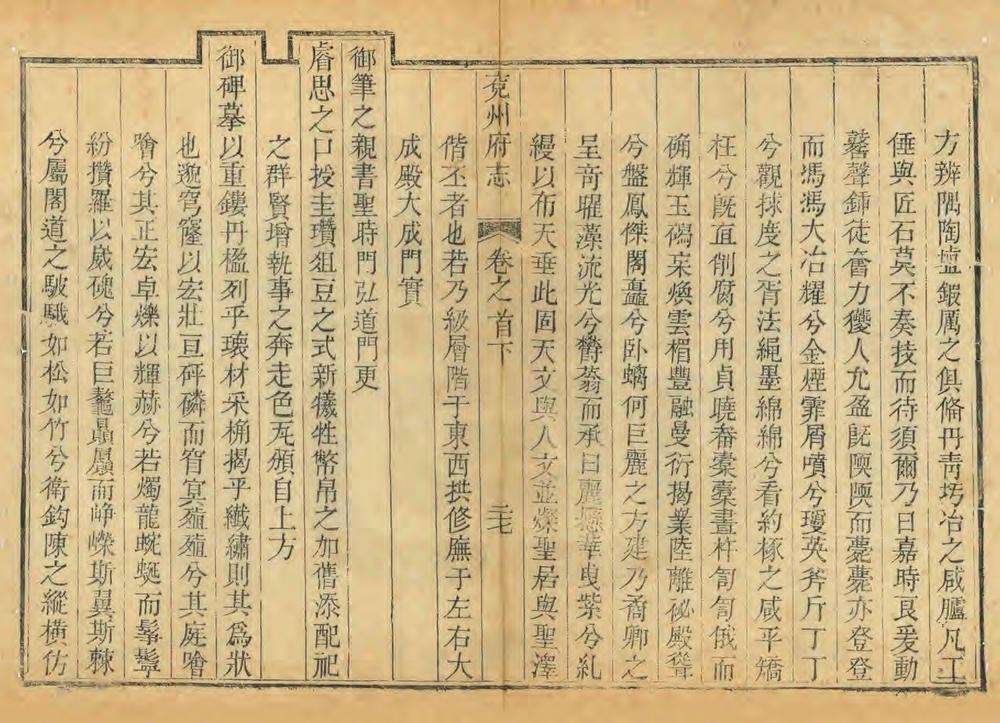 方辨隅陶壚鍛厲之俱脩丹青圬冶之咸臚凡工
倕與匠石莫不奏技而待須爾乃日嘉時良爰動
鼛聲鍤徒奮力獿人尤盈旣陾陾而薨薨亦登登
而馮馮大冶耀兮金煙霏屑噴兮瓊英斧斤丁丁
兮觀捄度之胥法繩墨綿綿兮看約椓之咸平矯
枉兮旣直削腐兮用貞曉畚橐橐晝杵訇訇俄而
碖輝玉磶宷煥雲楣豐融曼衍揭業陸離祕殿聳
兮盤鳳傑閣矗兮卧螭何巨麗之方建乃矞卿之
呈奇曜藻流光兮欝蓊而承日麗懸華曳紫兮糺
縵以布天垂此固天文與人文並燦聖居與聖澤
偕丕者也若乃級層階于東西拱修廡于左右大
成殿大成門實
兖州府志 卷之首下 三七
御筆之親書聖時門弘道門更
睿思之口授圭瓚俎豆之式新犧牲幣帛之加僃添配祀
之群賢增執事之奔走色瓦頒自上方
御碑摹以重鏤丹楹列乎瓌材采桷揭乎纖繡則其爲狀
也邈穹窿以宏壯亘砰磷而窅窴殖殖兮其庭噲
噲兮其正宏卓爍以輝赫兮若燭龍蜿蜒而髤鬡
紛攢羅以崴磈兮若巨鼇贔屭而崢嶸斯翼斯棘
兮屬閣道之駊騀如松如竹兮衛鈎陳之縱橫仿